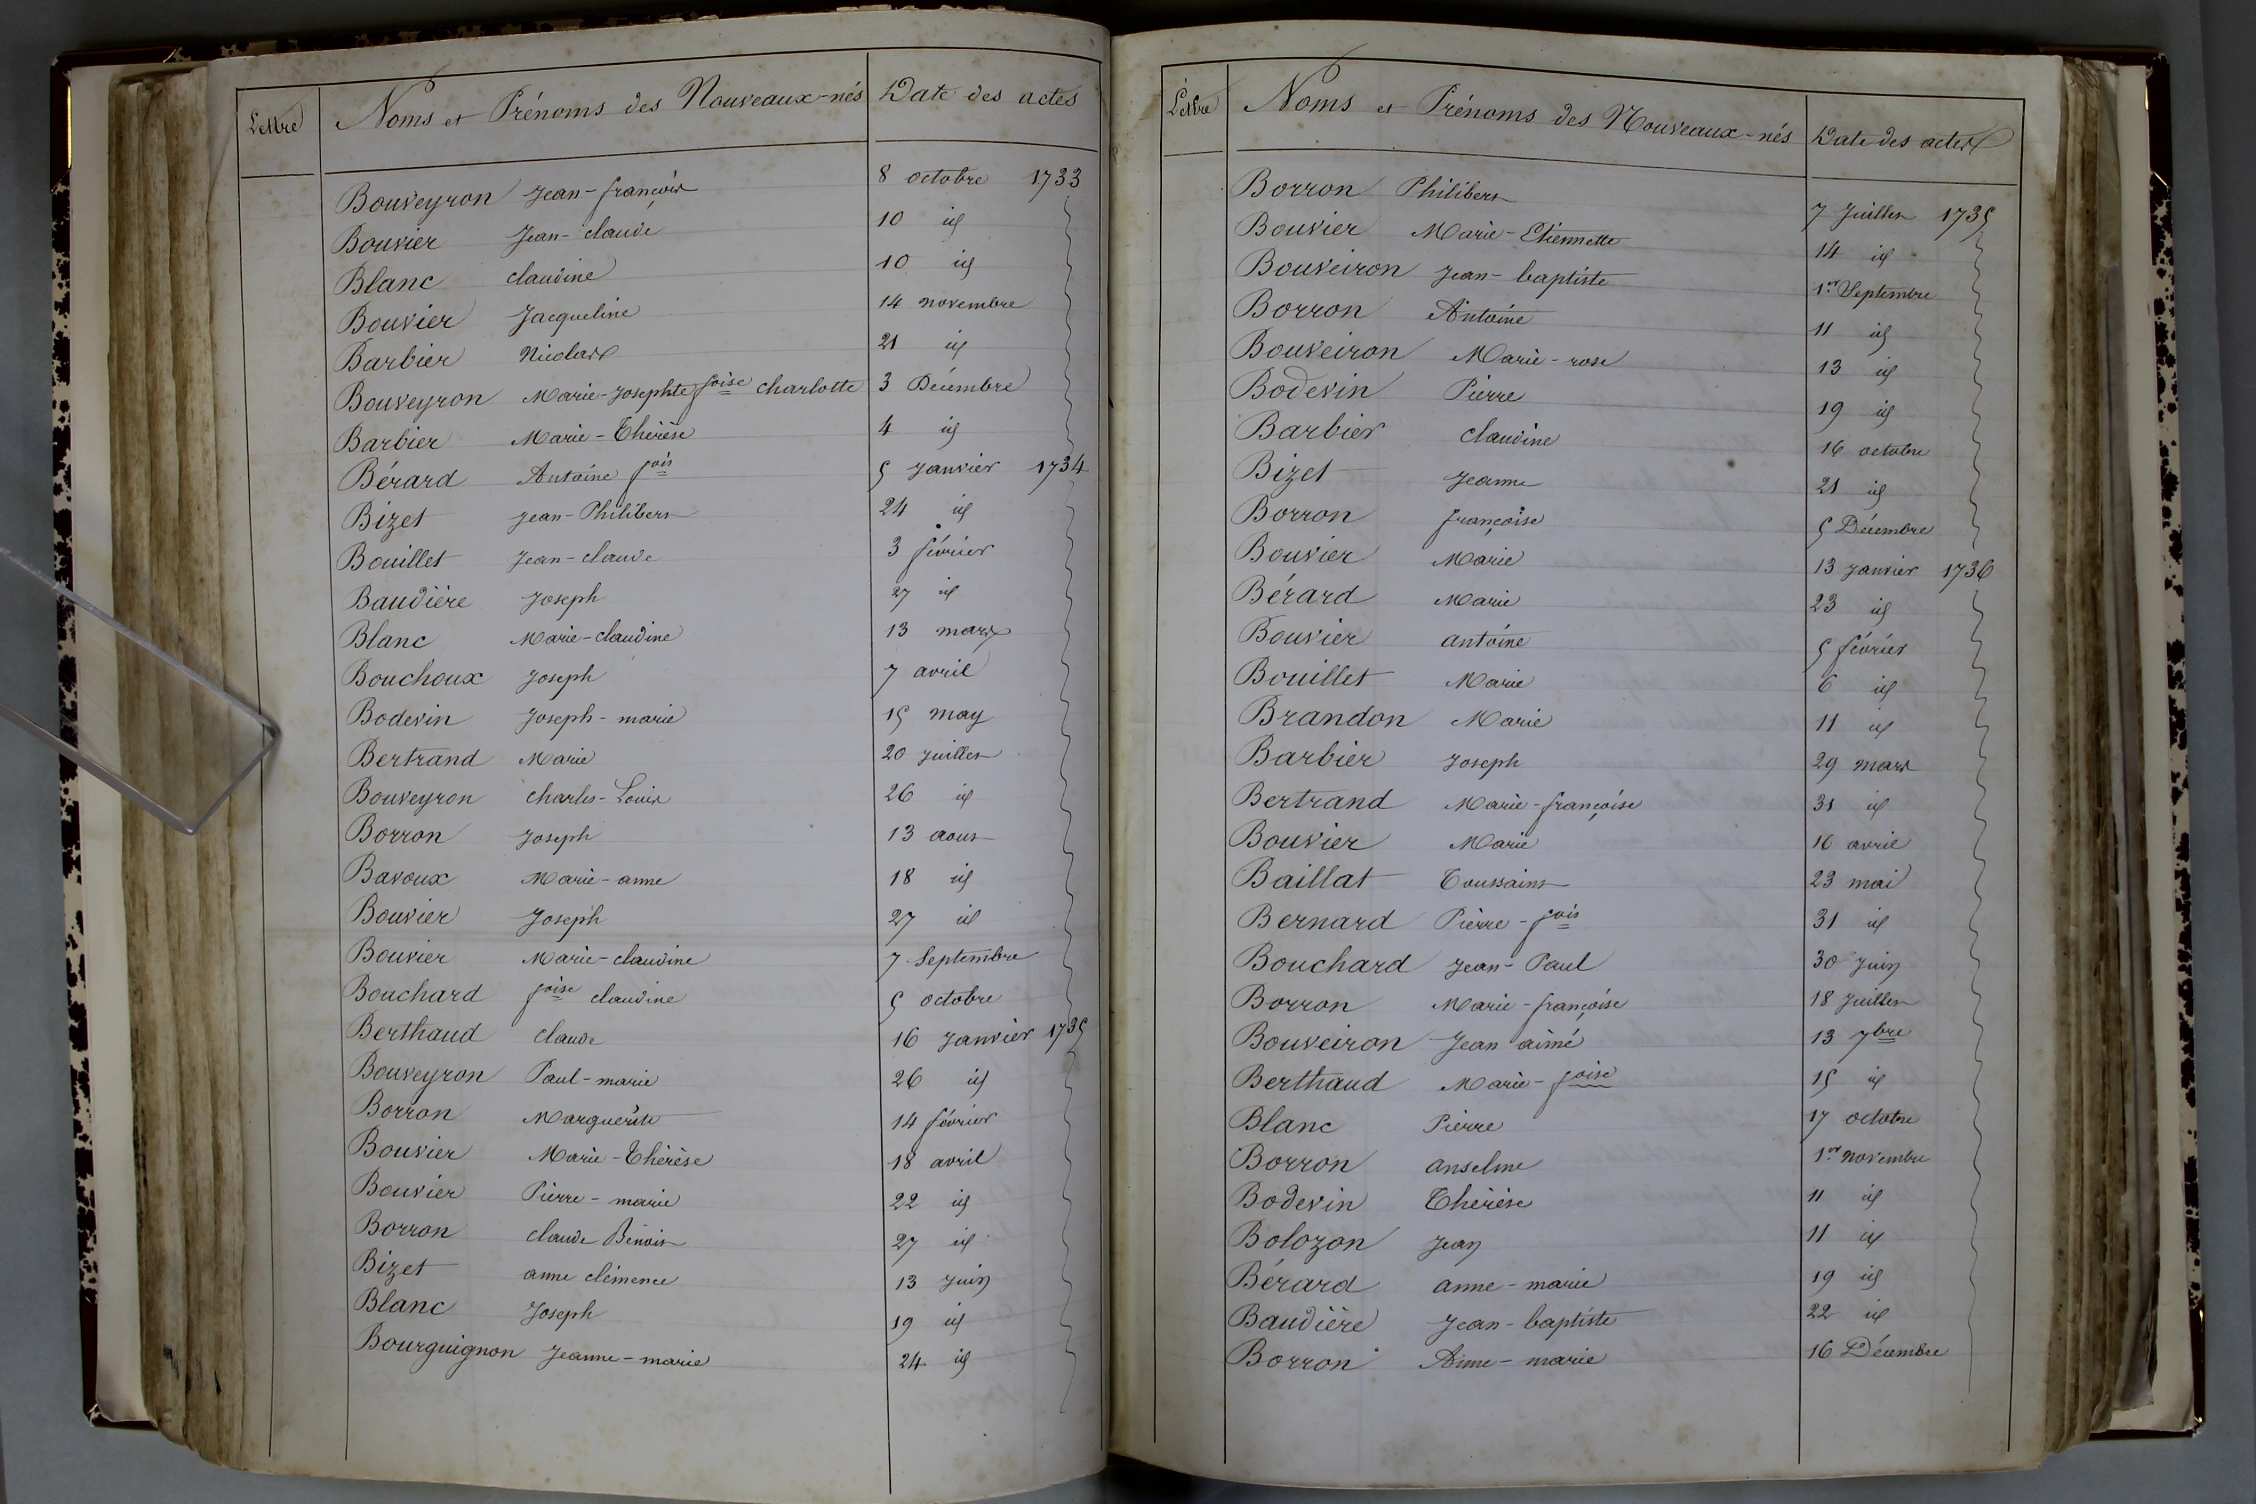 Lettre Noms et Prénoms des Nouveaux-nés Date des actes
Bouveyron Jean-françois 8 octobre 1733
Bouvier Jean-claude 10 id
Blanc claudine 10 id
Bouvier Jacqueline 14 novembre
Barbier Nicolas 21 id
Bouveyron Marie-Josephte foise charlotte 3 Décembre
Barbier Marie-Thérèse 4 id
Bérard Antoine fois 5 Janvier 1734
Bizet Jean-Philibert 24 id
Bouillet Jean-claude 3 février
Baudière Joseph 27 id
Blanc Marie-claudine 13 mars
Bouchoux Joseph 7 avril
Bodevin Joseph-marie 15 may
Bertrand Marie 20 Juillet
Bouveyron charles-Louis 26 id
Borron Joseph 13 aout
Bavoux Marie-anne 18 id
Bouvier Joseph 27 id
Bouvier Marie-claudine 7 Septembre
Bouchard foise claudine 5 octobre
Berthaud claude 16 Janvier 1735
Bouveyron Paul-marie 26 id
Borron Marguerite 14 février
Bouvier Marie-Thérèse 18 avril
Bouvier Pierre-marie 22 id
Borron claude Benoit 27 id
Bizet anne clémence 13 Juin
Blanc Joseph 19 id
Bourguignon Jeanne-marie 24 id
Lettre Noms et Prénoms des Nouveaux-nés Date des actes
Borron Philibert 7 Juillet 1735
Bouvier Marie-Etiennette 14 id
Bouveiron Jean-baptiste 1er Septembre
Borron Antoine 11 id
Bouveiron Marie-rose 13 id
Bodevin Pierre 19 id
Barbier claudine 16 octobre
Bizet Jeanne 21 id
Borron françoise 5 Décembre
Bouvier Marie 13 Janvier 1736
Bérard Marie 23 id
Bouvier antoine 5 février
Bouillet Marie 6 id
Brandon Marie 11 id
Barbier Joseph 29 mars
Bertrand Marie-françoise 31 id
Bouvier Marie 16 avril
Baillat Toussaint 23 mai
Bernard Pierre-fois 31 id
Bouchard Jean-Paul 30 Juin
Borron Marie-françoise 18 Juillet
Bouveiron Jean aimé 13 7bre
Berthaud Marie-foise 15 id
Blanc Pierre 17 octobre
Borron anselme 1er novembre
Bodevin Thérèse 11 id
Bolozon Jean 11 id
Bérard anne-marie 19 id
Baudière Jean-baptiste 22 id
Borron Anne-marie 16 Décembre